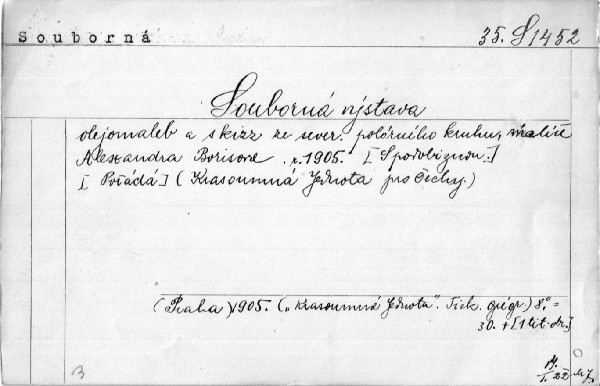 Souborná
35. S 1452
Souborná výstava
olejomaleb a skizz ze sever. polárního kruhu, malíře
Alexandra Borisova r. 1905. [S podobiznou.]
[Pořádá] (Krasoumná Jednota pro Čechy.)
(Praha) 1905. („Krasoumná Jednota". Tisk. Grégr.) 8.° =
30. + [1 tit. obr.]